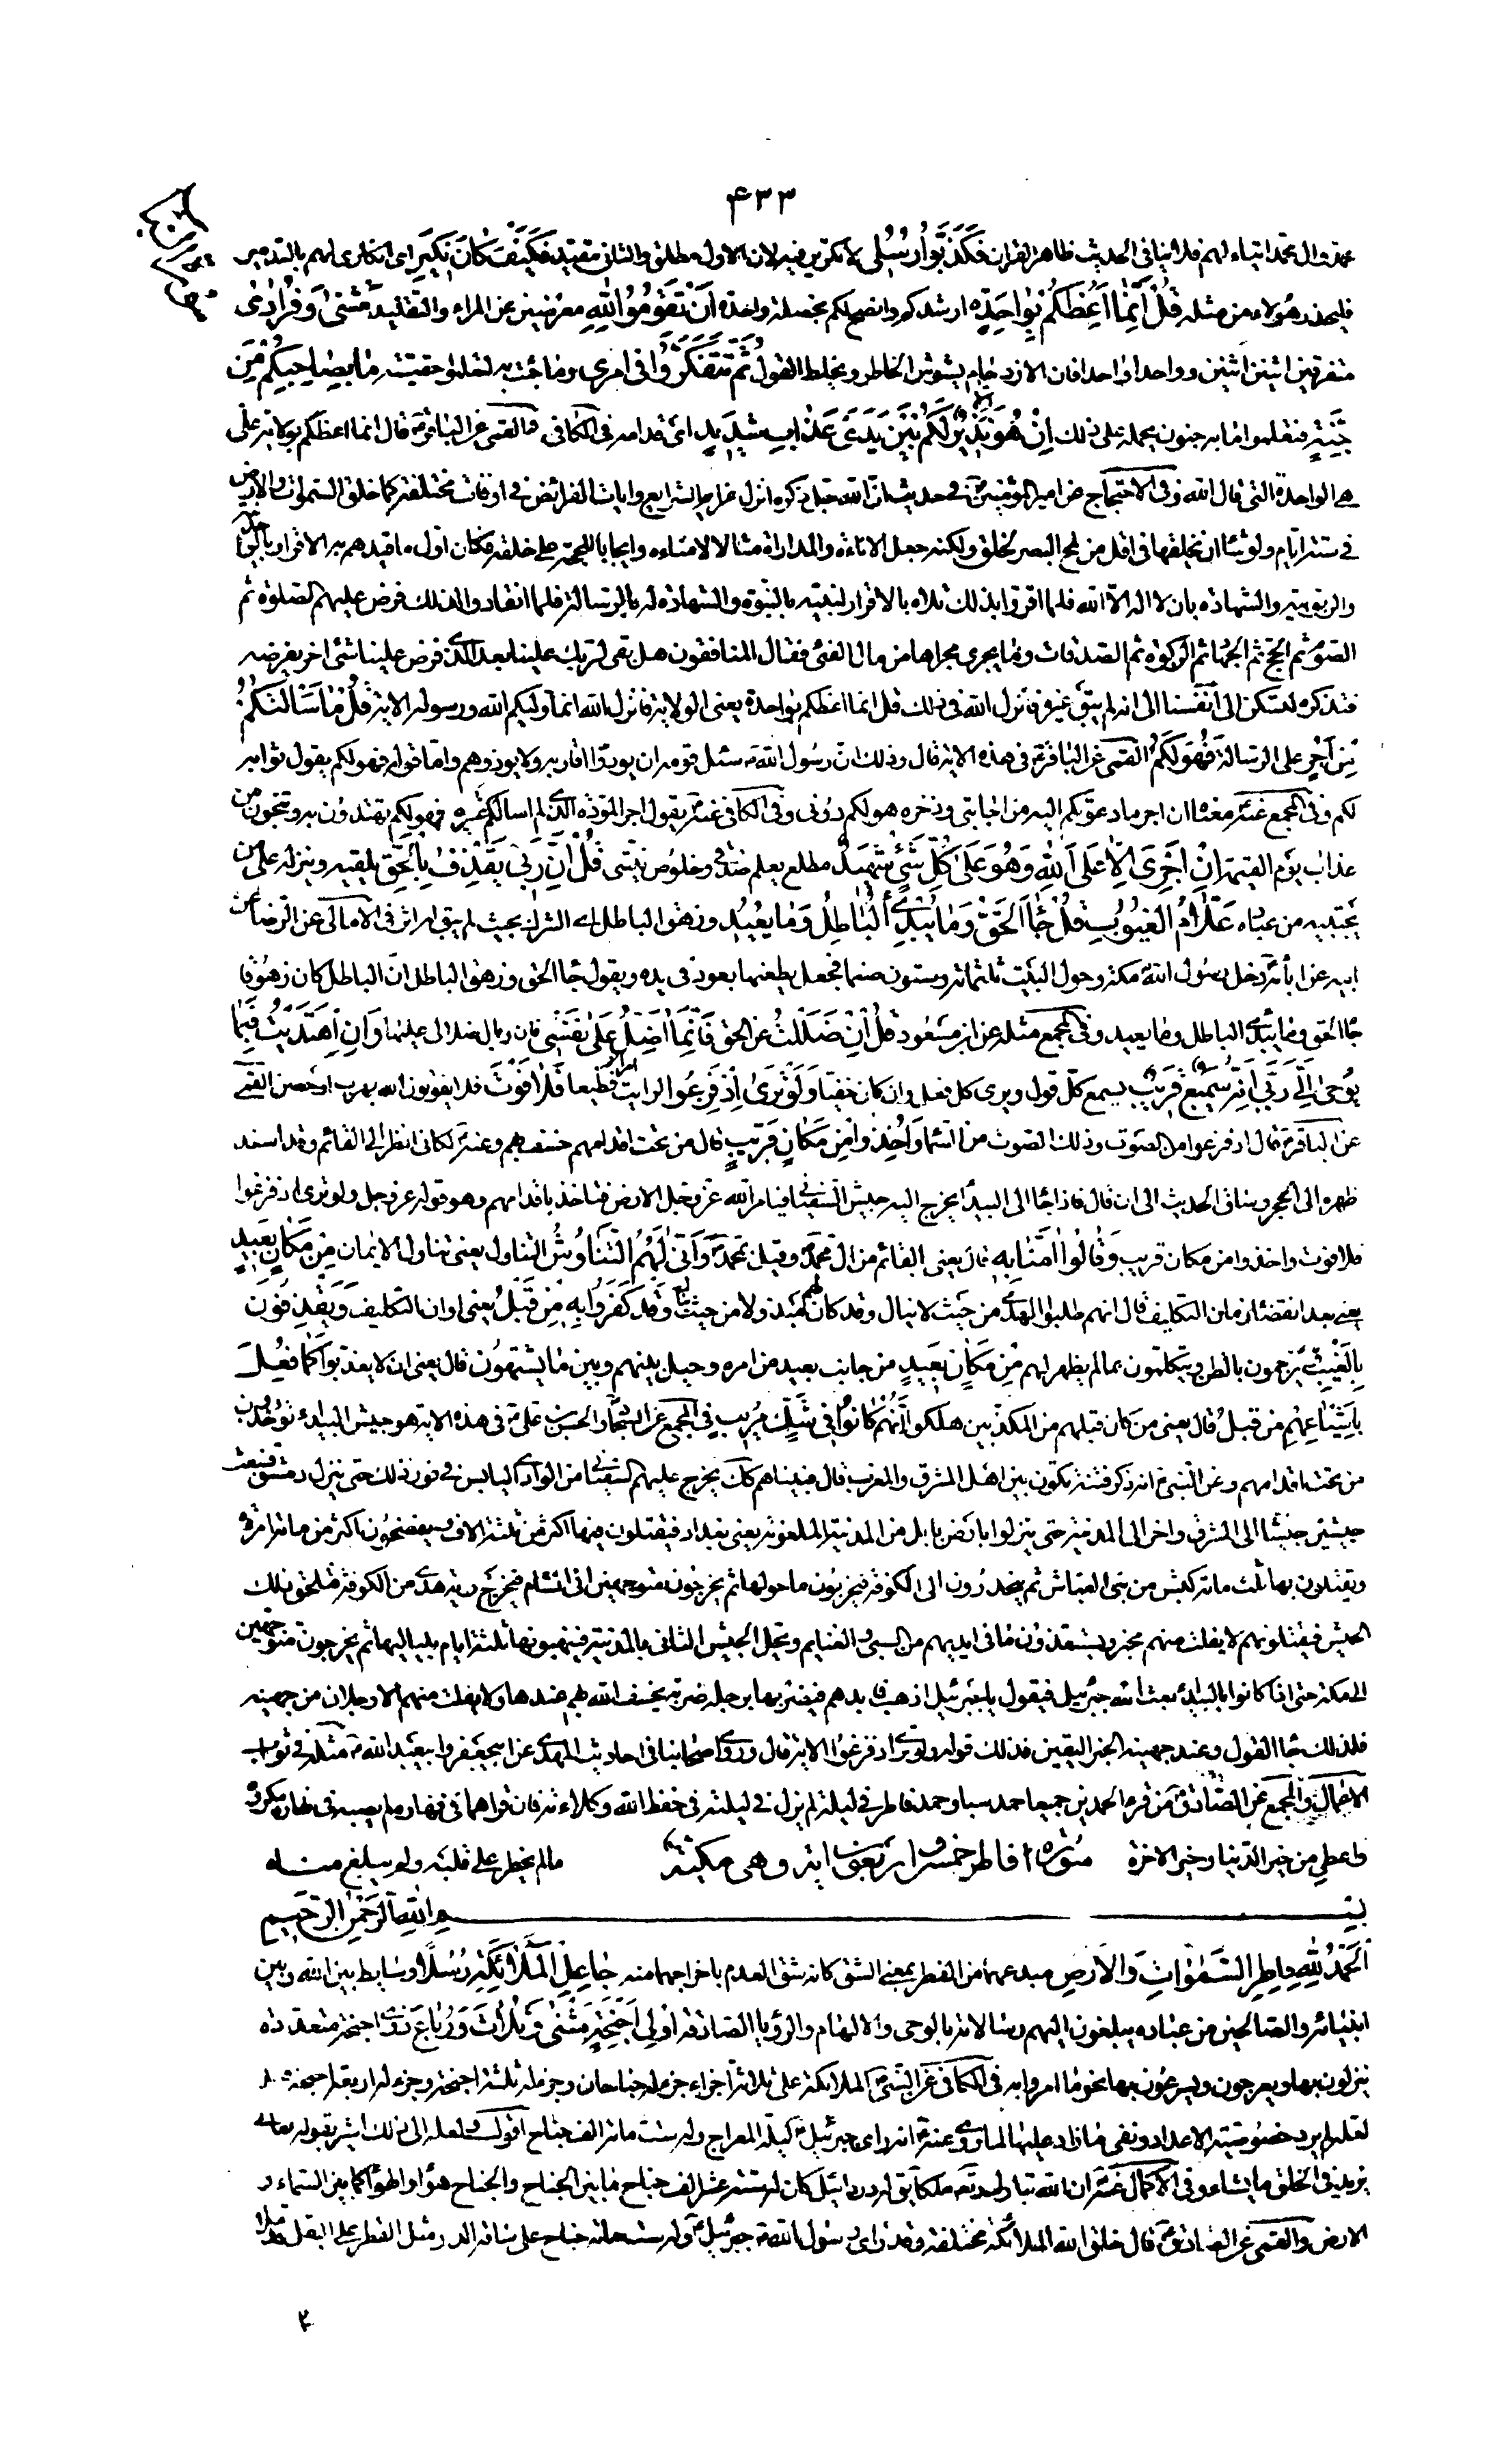 ۴۳۳
محمد وال محمد ايتاء لهم فلا ينافى الحديث ظاهر القران فَكَذَّبُوا رُسُلِى لا تكرير فيه لان الاول مطلق والثانى مقيد فَكَيْفَ كَانَ نَكِيرِ اى انكارى لهم بالتدمير
فليحذر هؤلاء من مثله قُلْ اِنَّمَا اَعِظُكُمْ بِوَاحِدَةٍ ارشدكم وانصح لكم بخصلة واحدة اَنْ تَقُومُوا لِلّٰهِ معرضين عن المراء والتقليد مَثْنىٰ وَفُرَادىٰ
متفرقين اثنين اثنين وواحدا واحدا فان الازدحام يشوش الخاطر ويخلط القول ثُمَّ تَتَفَكَّرُوا فى امرى وما جئت به لتعلموا حقيقته مَا بِصَاحِبِكُمْ مِنْ
جِنَّةٍ فتعلموا ما به جنون يحمله على ذلك اِنْ هُوَ اِلَّا نَذِيرٌ لَكُمْ بَيْنَ يَدَىْ عَذَابٍ شَدِيدٍ اى قدامه فى الكافى والقمى عن الباقر ع قال انما اعظكم بولاية على
هى الواحدة التى قال الله وفى الاحتجاج عن امير المؤمنين ع فى حديث ان الله جل ذكره انزل عزايم الشرايع وايات الفرائض فى اوقات مختلفة كما خلق السموات والارض
فى ستة ايام ولو شاء ان يخلقها فى اقل من لمح البصر لخلق ولكنه جعل الاناة والمداراة مثالا لامناءه وايجابا للحجة على خلقه فكان اول ما قيدهم به الاقرار بالوحدانية
والربوبية والشهادة بان لا اله الا الله فلما اقروا بذلك تلاه بالاقرار لنبيه بالنبوة والشهادة له بالرسالة فلما انقادوا لذلك فرض عليهم الصلوة ثم
الصوم ثم الحج ثم الجهاد ثم الزكوة ثم الصدقات وما يجرى مجراها من مال الفئ فقال المنافقون هل بقى لربك علينا بعد الذى فرض علينا شئ اخر يفرضه
فتذكره لتسكن انفسنا الى انه لم يبق غيره فانزل الله فى ذلك قل انما اعظكم بواحدة يعنى الولاية فانزل الله انما وليكم الله ورسوله الاية قُلْ مَا سَاَلْتُكُمْ
مِنْ اَجْرٍ على الرسالة فَهُوَ لَكُمْ القمى عن الباقر ع فى هذه الاية قال وذلك ان رسول الله ص سئل قومه ان يودوا اقاربه ولا يوذوهم واما قوله فهو لكم يقول ثوابه
لكم وفى المجمع عنه ع معناه ان اجر ما دعوتكم اليه من اجابتى وذخره هو لكم دونى وفى الكافى عنه ع يقول اجر المودة الذى لم اسالكم غيره فهو لكم تهتدون به وتنجون من
عذاب يوم القيمة اِنْ اَجْرِىَ اِلَّا عَلَى اللّٰهِ وَهُوَ عَلىٰ كُلِّ شَىْءٍ شَهِيدٌ مطلع يعلم صدقى وخلوص نيتى قُلْ اِنَّ رَبِّى يَقْذِفُ بِالْحَقِّ يلقيه وينزله على من
يجتبيه من عباده عَلَّامُ الْغُيُوبِ قُلْ جَاءَ الْحَقُّ وَمَا يُبْدِئُ الْبَاطِلُ وَمَا يُعِيدُ وزهق الباطل اى الشرك بحيث لم يبق له اثر فى الامالى عن الرضا عن
ابيه عن ابائه دخل رسول الله مكة وحول البيت ثلثمائة وستون صنما فجعل يطعنها بعود فى يده ويقول جاء الحق وزهق الباطل ان الباطل كان زهوقا
جاء الحق وما يبدئ الباطل وما يعيد وفى المجمع مثله عن ابن مسعود قُلْ اِنْ ضَلَلْتُ عن الحق فَاِنَّمَا اَضِلُّ عَلىٰ نَفْسِى فان وبال ضلالى عليها وَاِنِ اهْتَدَيْتُ فَبِمَا
يُوحىٰ اِلَىَّ رَبِّى اِنَّهُ سَمِيعٌ قَرِيبٌ يسمع كل قول ويرى كل فعل وان كان خفيا وَلَوْ تَرىٰ اِذْ فَزِعُوا لرايت امرا فظيعا فَلَا فَوْتَ فلا يفوتون الله بهرب او حصن القمى
عن الباقر ع قال اذ فزعوا من الصوت وذلك الصوت من السماء وَاُخِذُوا مِنْ مَكَانٍ قَرِيبٍ قال من تحت اقدامهم خسف بهم وعنه ع لكانى انظر الى القائم وقد اسند
ظهره الى الحجر وساق الحديث الى ان قال فاذا جاء الى البيداء يخرج اليه جيش السفيانى فيامر الله عز وجل الارض فتاخذ باقدامهم وهو قوله عز وجل ولو ترى اذ فزعوا
فلا فوت واخذوا من مكان قريب وَقَالُوا اٰمَنَّا بِهِ قال يعنى القائم من ال محمد وقيل بمحمد وَاَنّىٰ لَهُمُ التَّنَاوُشُ التناول يعنى تناول الايمان مِنْ مَكَانٍ بَعِيدٍ
يعنى بعد انقضاء زمان التكليف قال انهم طلبوا الهدى من حيث لا ينال وقد كان لهم مبذولا من حيث ينال وَقَدْ كَفَرُوا بِهِ مِنْ قَبْلُ يعنى اوان التكليف وَيَقْذِفُونَ
بِالْغَيْبِ يرجمون بالظن ويتكلمون بما لم يظهر لهم مِنْ مَكَانٍ بَعِيدٍ من جانب بعيد من امره وحيل بينهم وبين ما يشتهون قال يعنى ان لا يعذبوا كَمَا فُعِلَ
بِاَشْيَاعِهِمْ مِنْ قَبْلُ قال يعنى من كان قبلهم من المكذبين هلكوا اِنَّهُمْ كَانُوا فِى شَكٍّ مُرِيبٍ فى المجمع عن السجاد والحسن بن على ع فى هذه الاية هو جيش البيداء يؤخذون
من تحت اقدامهم وعن النبى ص انه ذكر فتنة تكون بين اهل المشرق والمغرب قال فبيناهم كك يخرج عليهم السفيانى من الوادى اليابس فى فور ذلك حتى ينزل دمشق فيبعث
جيشين جيشا الى المشرق واخر الى المدينة حتى ينزلوا بارض بابل من المدينة الملعونة يعنى بغداد فيقتلون منها اكثر من ثلثة الاف ويفضحون اكثر من مائة امرأة
ويقتلون بها ثلث مائة كبش من بنى العباس ثم ينحدرون الى الكوفة فيخربون ما حولها ثم يخرجون متوجهين الى الشام فيخرج راية هدى من الكوفة فتلحق ذلك
الجيش فيقتلونهم لا يفلت منهم مخبر ويستنقذون ما فى ايديهم من السبى والغنايم ويحل الجيش الثانى بالمدينة فينهبونها ثلثة ايام بلياليها ثم يخرجون متوجهين
الى مكة حتى اذا كانوا بالبيداء بعث الله جبرئيل فيقول يا جبرئيل اذهب فابدهم فيضربها برجله ضربة يخسف الله بهم عندها ولا يفلت منهم الا رجلان من جهينة
فلذلك جاء القول وعند جهينة الخبر اليقين فذلك قوله ولو ترى اذ فزعوا الاية قال وروى اصحابنا فى احاديث المهدى عن ابيجعفر وابيعبد الله ع مثله فى ثواب
الاعمال والمجمع عن الصادق ع من قرء الحمدين جميعا حمد سبا وحمد فاطر فى ليلة لم يزل فى ليلته فى حفظ الله وكلاءته فان قراهما فى نهاره لم يصبه فى نهاره مكروه
واعطى من خير الدنيا وخير الاخرة ما لم يخطر على قلبه ولم يبلغ مناه
سورة فاطر خمس واربعون اية وهى مكية
بسم الله الرحمن الرحيم
اَلْحَمْدُ لِلّٰهِ فَاطِرِ السَّمٰوَاتِ وَالْاَرْضِ مبدعهما من الفطر بمعنى الشق كانه شق العدم باخراجهما منه جَاعِلِ الْمَلَائِكَةِ رُسُلًا وسايط بين الله وبين
انبيائه والصالحين من عباده يبلغون اليهم رسالاته بالوحى والالهام والرؤيا الصادقة اُولِى اَجْنِحَةٍ مَثْنىٰ وَثُلَاثَ وَرُبَاعَ ذوى اجنحة متعددة
ينزلون بها ويعرجون ويسرعون بها نحو ما امروا به فى الكافى عن النبى ص الملائكة على ثلاثة اجزاء جزء له جناحان وجزء له ثلثة اجنحة وجزء له اربعة اجنحة
لعله لم يرد خصوصية الاعداد ونفى ما زاد عليها لما روى عنه ص انه راى جبرئيل ليلة المعراج وله ست مائة الف جناح اقول ولعله الى ذلك اشير بقوله تعالى
يزيد فى الخلق ما يشاء وفى الاكمال عنه ص ان الله تبارك وتعالى ملكا يقال له دردائيل كان له ستة عشر الف جناح ما بين الجناح والجناح هواء والهواء كما بين السماء و
الارض والقمى عن الصادق ع قال خلق الله الملائكة مختلفة وقد راى رسول الله ص جبرئيل وله ستمائة جناح على ساقه الدر مثل القطر على البقل قد ملأ